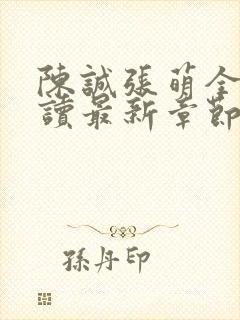 陳誠張萌全
讀最新章節
孫丹印